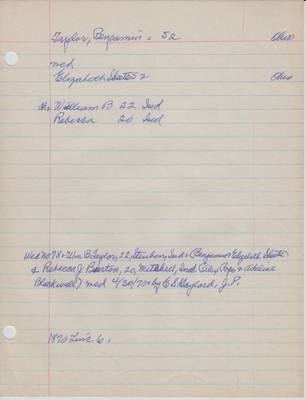 Taylor, Benjamin 52 Ohio
med
Elizabeth Skate 52 Ohio
William B 22 Ind
Rebecca 20 Ind
Wed No 78 Wm B Taylor, 22, Steuben, Ind (Benjamin Elizabeth Skate)
& Rebecca J Barton, 20, Mitchell, Ind (Alex, & Adeline
Blackwell) med 4/30/70 by E S Gaylord, J.P.
1870 6